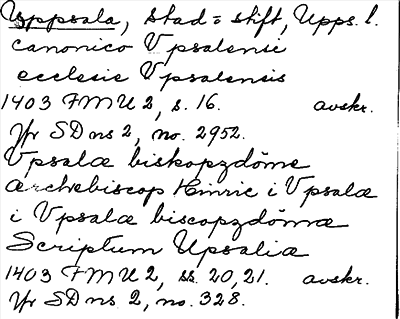 Uppsala, stad = stift, Upps. l.
canonico Vpsalensi
ecclesie Vpsalensis
1403 FMU 2, s. 16. avskr.
Jfr SD ns 2, no. 2952.
Vpsala biskopzdöme
ærchebiscop Hinric i Vpsala
i Vpsala biscopzdöma
Scriptum Upsalia
1403 FMU 2, ss. 20, 21. avskr.
Jfr SD ns 2, no. 328.